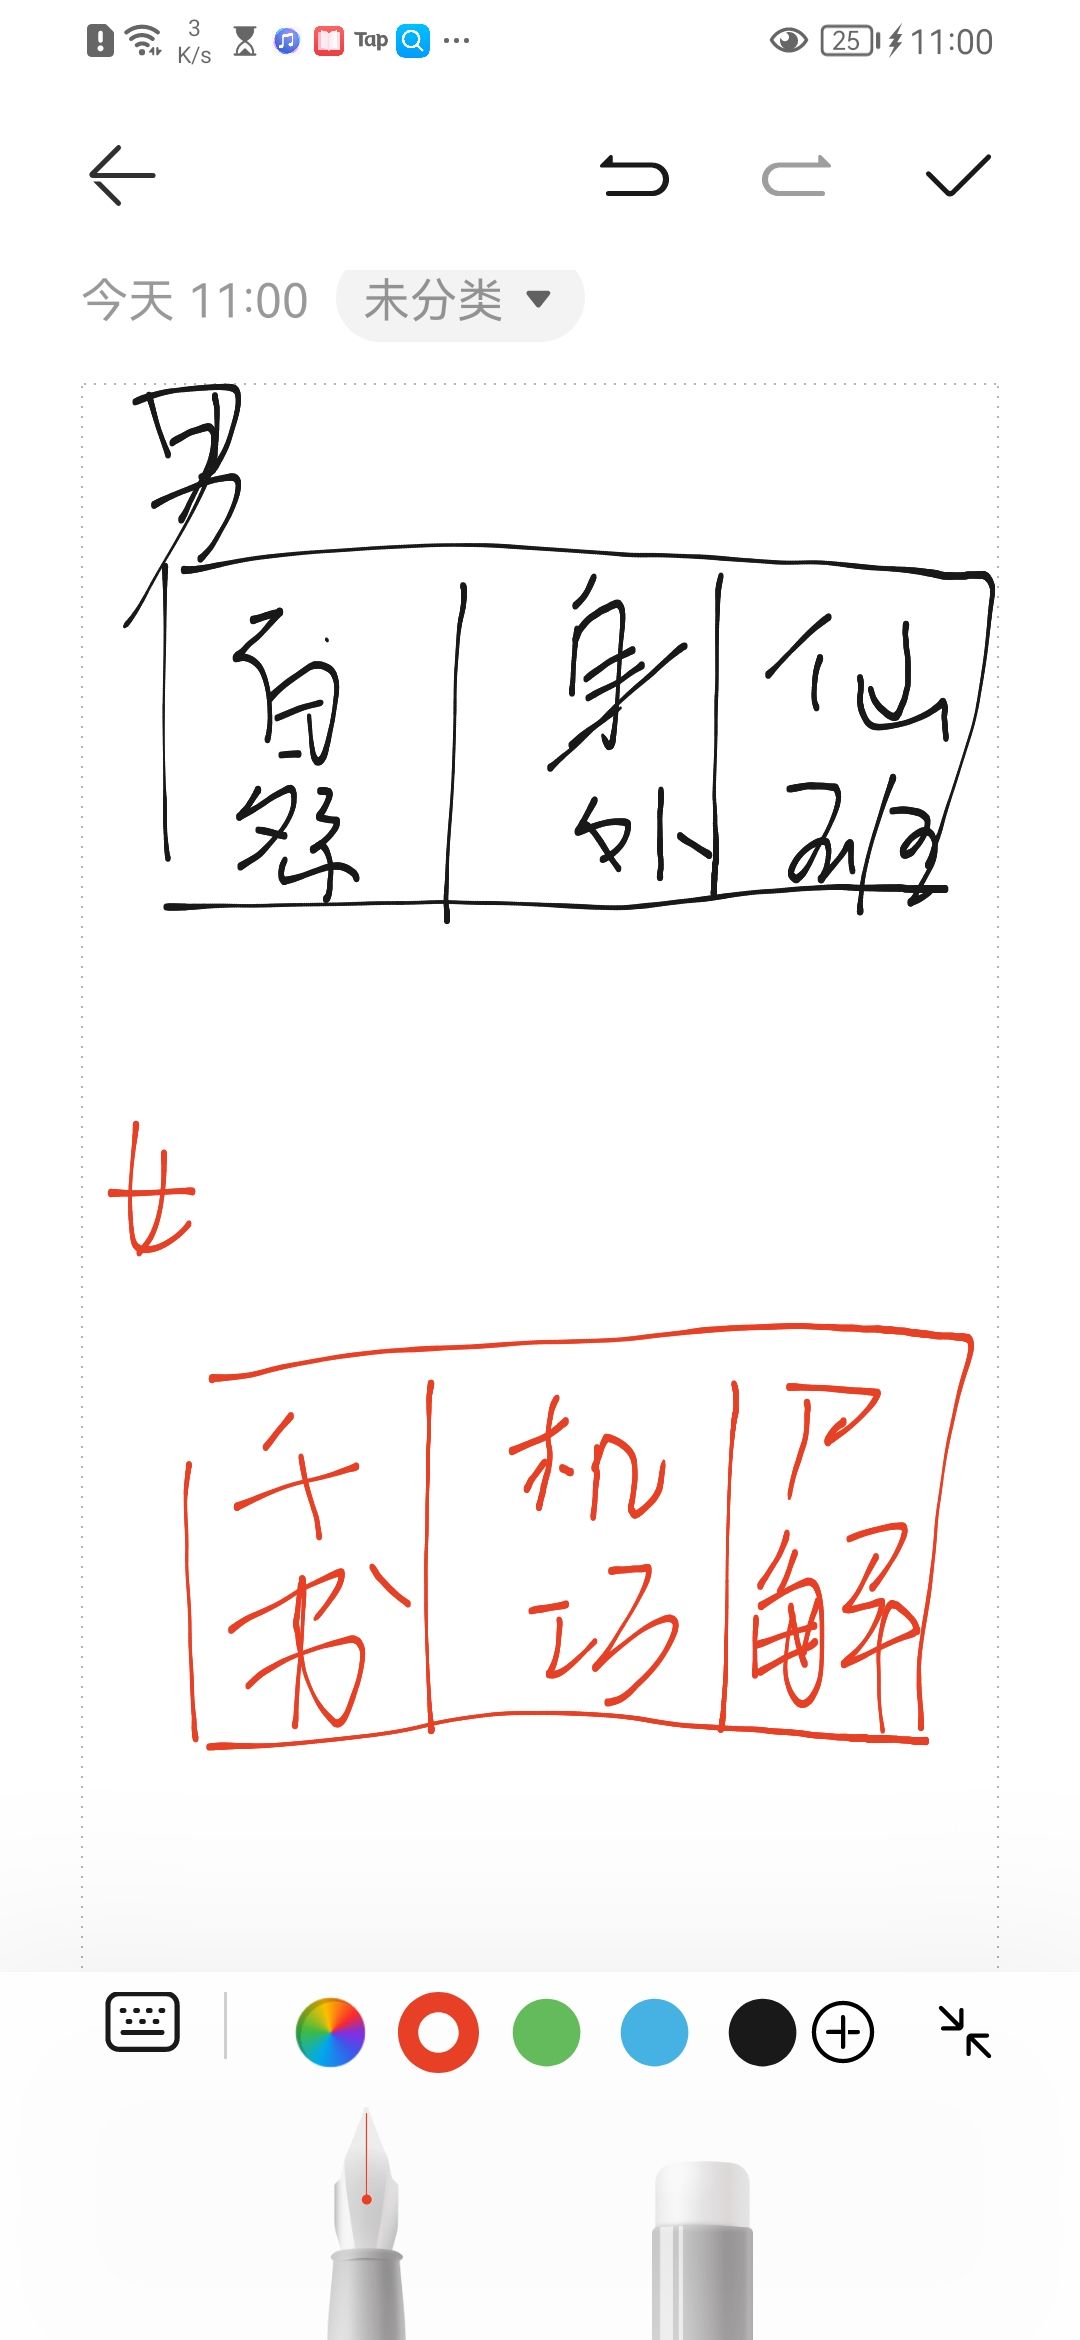 3
K/s
Tap
25
11:00
今天 11:00
未分类
男
百
祭
身
外
仙
女
千
书
机
巧
尸
解